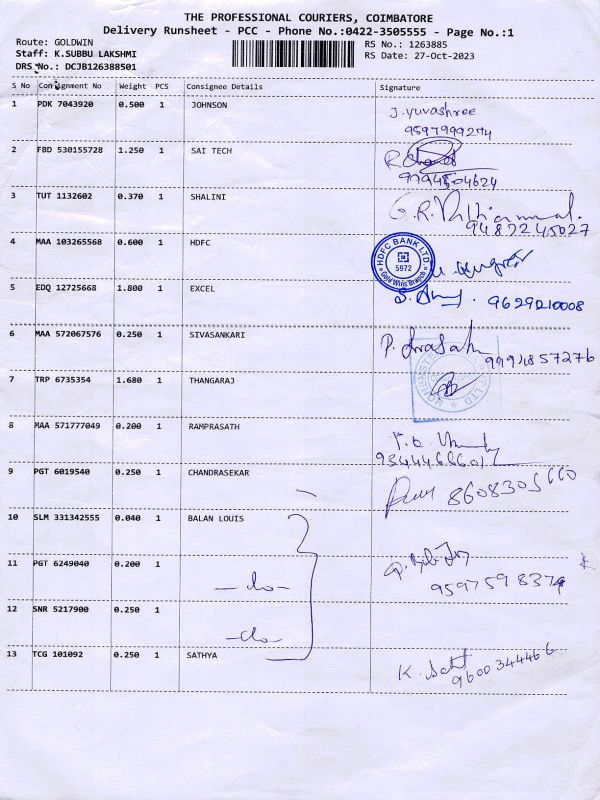 THE PROFESSIONAL COURIERS, COIMBATORE
Delivery Runsheet - PCC - Phone No.:0422-3505555 - Page No.:1
Route: GOLDWIN RS No.: 1263885
Staff: K.SUBBU LAKSHMI RS Date: 27-Oct-2023
DRS No.: DCJB126388501
S No Consignment No Weight PCS Consignee Details Signature
1 PDK 7043920 0.500 1 JOHNSON J. yuvashree
9597999274
2 FBD 530155728 1.250 1 SAI TECH
9794504624
3 TUT 1132602 0.370 1 SHALINI G.R.
9487245027
4 MAA 103265568 0.600 1 HDFC HDFC BANK LTD.
5972
Gold Wins Branch
5 EDQ 12725668 1.800 1 EXCEL 9629210008
6 MAA 572067576 0.250 1 SIVASANKARI P.
7 TRP 6735354 1.680 1 THANGARAJ
8 MAA 571777049 0.200 1 RAMPRASATH
9 PGT 6019540 0.250 1 CHANDRASEKAR
10 SLM 331342555 0.040 1 BALAN LOUIS
11 PGT 6249040 0.200 1 —do—
9597598374
12 SNR 5217900 0.250 1 —do—
13 TCG 101092 0.250 1 SATHYA K.
9600344466